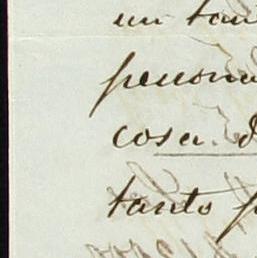 un tan
persona
cosa d
tanto